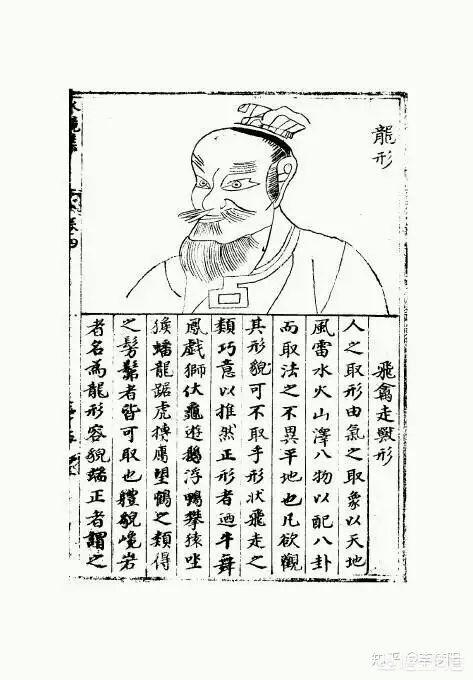 龍形
飛禽走獸形
人之取形由氣之取象以天地
風雷水火山澤八物以配八卦
而取法之不異平地也凡欲觀
其形貌可不取手形狀飛走之
類巧意以推然正形者迺牛舞
鳳戲獅伏龜遊鵝浮鴨攀猿坐
猴蟠龍踞虎摶鷹望鶴之類得
之髣髴者皆可取也軆貌巉岩
者名為龍形容貌端正者謂之
水鏡集
卷四
知乎